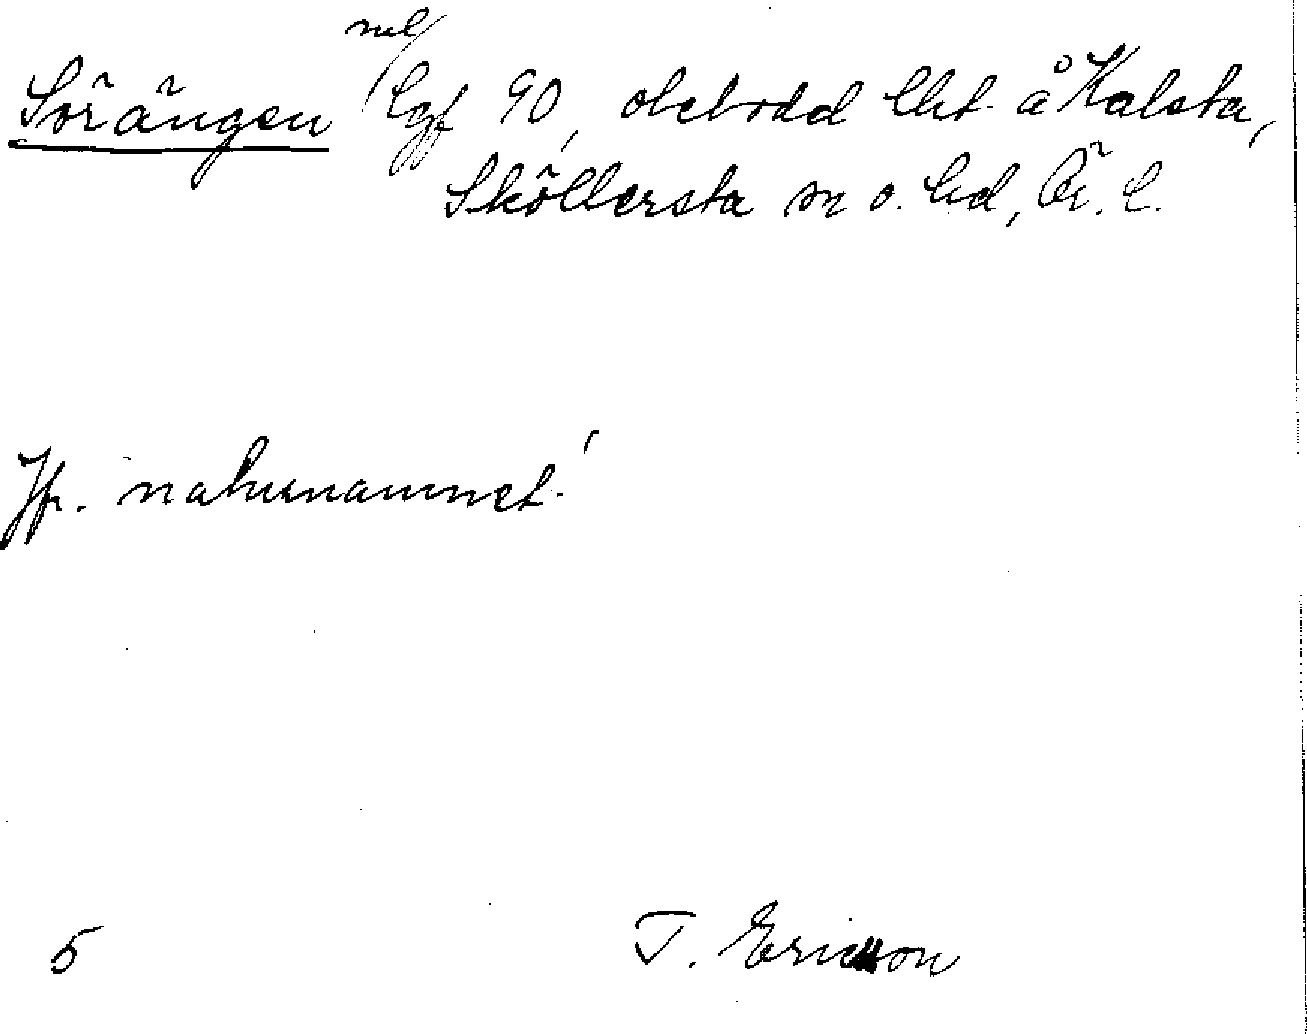 nel/
Sörängen lgf 90, obebodd lht å Kalsta,
Sköllersta sn o. hd, Ör. l.
Jfr. naturnamnet!
5 T. Ericsson